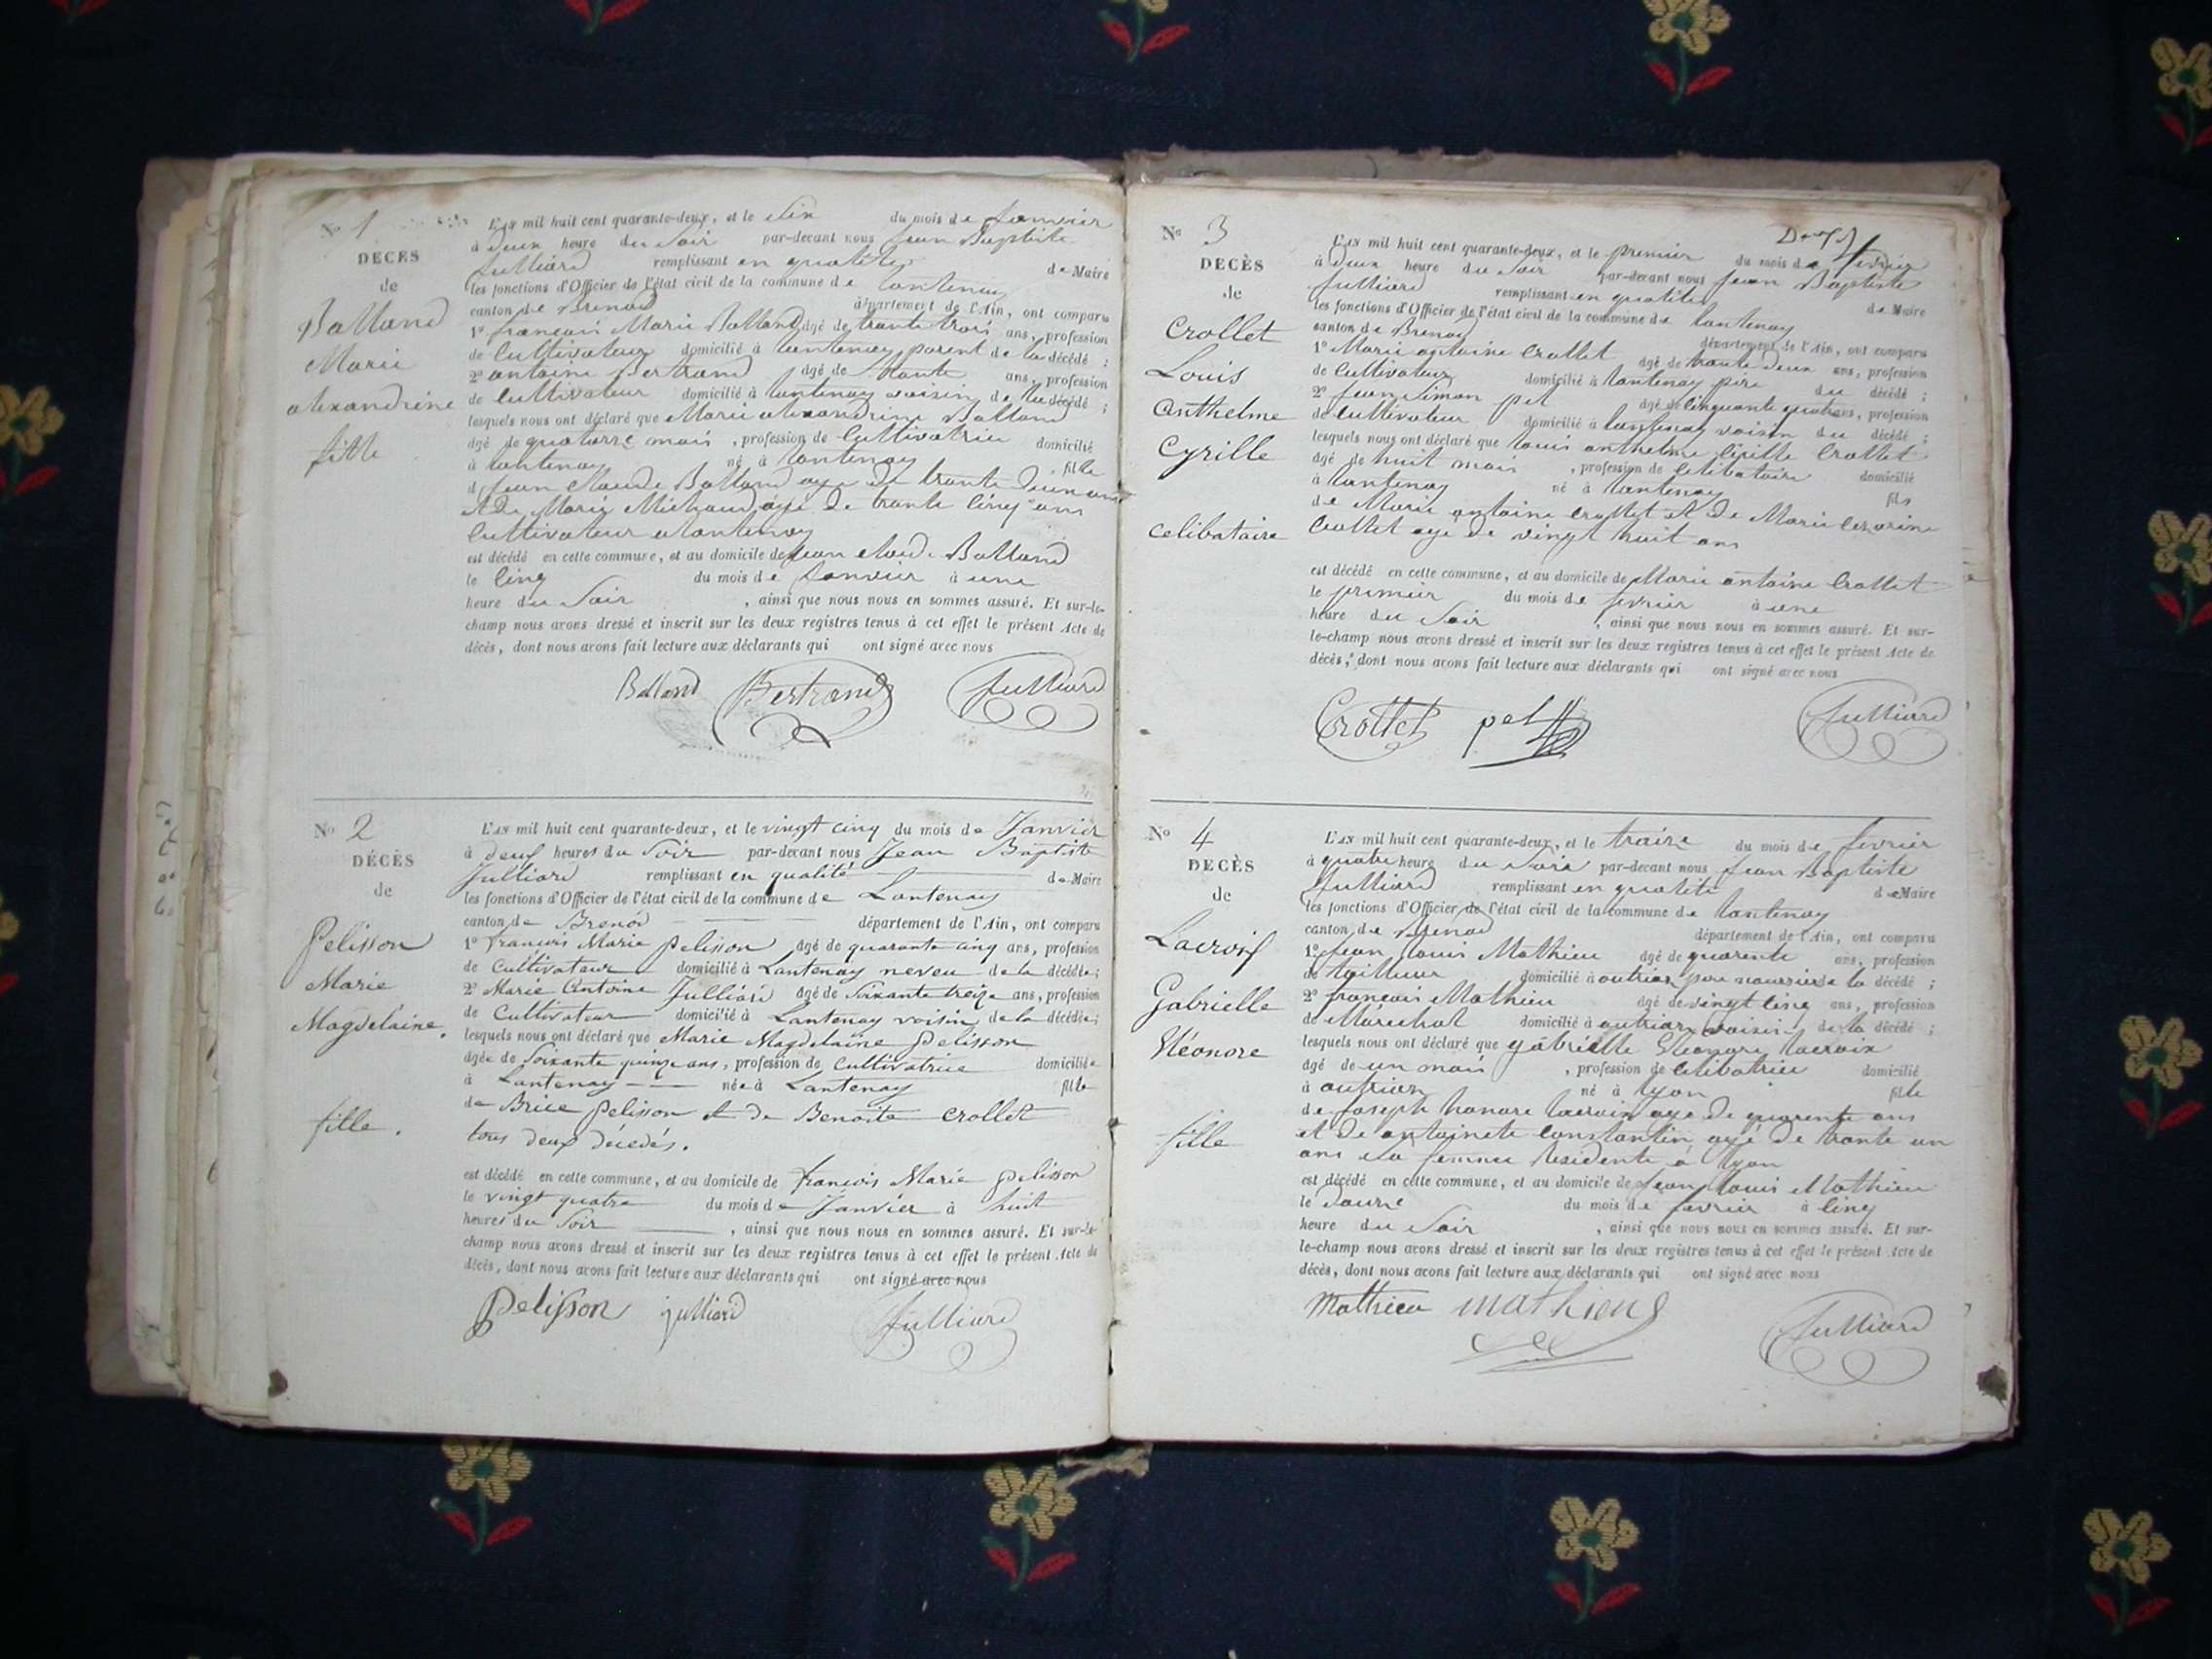 No 1
DECES
de
Balland
Marie
alexandrine
fille
L'AN mil huit cent quarante-deux, et le Six du mois de Janvier
à deux heure du Soir par-devant nous Jean Baptiste
Julliard remplissant en qualité de Maire
les fonctions d'Officier de l'état civil de la commune de Lantenay
canton de Brenod département de l'Ain, ont comparu
1° françois Marie Balland âgé de trante trois ans, profession
de Cultivateur domicilié à Lantenay parent de la décédé ;
2° antoine Bertrand âgé de trante ans, profession
de Cultivateur domicilié à Lantenay voisin de la décédé ;
lesquels nous ont déclaré que Marie alexandrine Balland
âgé de quatorze mois, profession de Cultivatrice domicilié
à Lantenay né à Lantenay fille
d Jean Claude Balland agé de trante deux ans
et de Marie Michaud agé de trante cinq ans
Cultivateur a Lantenay
est décédé en cette commune, et au domicile de Jean Claude Balland
le Cinq du mois de Janvier à une
heure du Soir, ainsi que nous nous en sommes assuré. Et sur-le-
champ nous avons dressé et inscrit sur les deux registres tenus à cet effet le présent Acte de
décès, dont nous avons fait lecture aux déclarants qui ont signé avec nous
Balland Bertrand Julliard
No 2
DÉCÈS
de
Pelisson
Marie
Magdelaine.
fille.
L'AN mil huit cent quarante-deux, et le vingt cinq du mois de Janvier
à deux heures du Soir par-devant nous Jean Baptiste
Julliard remplissant en qualité de Maire
les fonctions d'Officier de l'état civil de la commune de Lantenay
canton de Brenod département de l'Ain, ont comparu
1° françois Marie pelisson âgé de quarante cinq ans, profession
de Cultivateur domicilié à Lantenay neveu de la décédée;
2° Marie Antoine Julliard âgé de Soixante treize ans, profession
de Cultivateur domicilié à Lantenay voisin de la décédée;
lesquels nous ont déclaré que Marie Magdelaine pelisson
âgée de Soixante quinze ans, profession de Cultivatrice domiciliée
à Lantenay née à Lantenay fille
de Brice pelisson et de Benoite Crollet
tous deux décedés.
est décédé en cette commune, et au domicile de françois Marie pelisson
le vingt quatre du mois de Janvier à huit
heures du Soir, ainsi que nous nous en sommes assuré. Et sur-le-
champ nous avons dressé et inscrit sur les deux registres tenus à cet effet le présent Acte de
décès, dont nous avons fait lecture aux déclarants qui ont signé avec nous
Pelisson julliard Julliard
No 3
DECÈS
de
Crollet
Louis
Anthelme
Cyrille
celibataire
L'AN mil huit cent quarante-deux, et le premier du mois de fevrier
à deux heure du Soir par-devant nous Jean Baptiste
Julliard remplissant en qualité de Maire
les fonctions d'Officier de l'état civil de la commune de Lantenay
canton de Brenod département de l'Ain, ont comparu
1° Marie antoine Crollet âgé de trante deux ans, profession
de Cultivateur domicilié à Lantenay père du décédé ;
2° Jean Simon pel âgé de Cinquante quatre ans, profession
de Cultivateur domicilié à Lantenay voisin du décédé ;
lesquels nous ont déclaré que Louis anthelme Cirille Crollet
âgé de huit mois, profession de Celibataire domicilié
à Lantenay né à Lantenay fils
de Marie antoine Crollet et de Marie Cezarine
Crollet agé de vingt huit ans
est décédé en cette commune, et au domicile de Marie antoine Crollet
le premier du mois de fevrier à une
heure du Soir, ainsi que nous nous en sommes assuré. Et sur-
le-champ nous avons dressé et inscrit sur les deux registres tenus à cet effet le présent Acte de
décès, dont nous avons fait lecture aux déclarants qui ont signé avec nous
Crollet pel Julliard
No 4
DECÈS
de
Lacroix
Gabrielle
Eléonore
fille
L'AN mil huit cent quarante-deux, et le traize du mois de fevrier
à quatre heure du Soir par-devant nous Jean Baptiste
Julliard remplissant en qualité de Maire
les fonctions d'Officier de l'état civil de la commune de Lantenay
canton de Brenod département de l'Ain, ont comparu
1° Jean Louis Mathieu âgé de quarente ans, profession
de tailleur domicilié à outriaz de la décédé ;
2° françois Mathieu âgé de vingt cinq ans, profession
de Marechal domicilié à outriaz voisin de la décédé ;
lesquels nous ont déclaré que gabrielle Eleonore Lacroix
âgé de un mois, profession de Celibatrice domicilié
à outriaz né à Lyon fille
de Joseph honore Lacroix agé de quarente ans
et de antoinete Constantin agé de trante un
ans sa femme residente à Lyon
est décédé en cette commune, et au domicile de Jean Louis Mathieu
le douze du mois de fevrier à Cinq
heure du Soir, ainsi que nous nous en sommes assuré. Et sur-
le-champ nous avons dressé et inscrit sur les deux registres tenus à cet effet le présent Acte de
décès, dont nous avons fait lecture aux déclarants qui ont signé avec nous
Mathieu mathieu Julliard